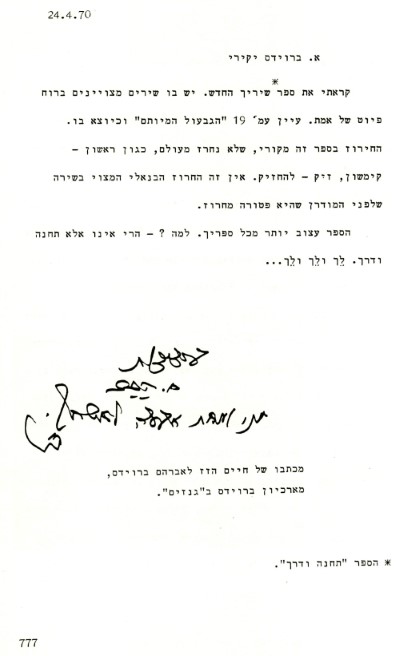 24.4.70
א. ברוידס יקירי
קראתי את ספר שיריך* החדש. יש בו שירים מצויינים ברוח
פיוט של אמת. עיין עמ' 19 "הגבעול המיותם" וכיוצא בו.
החירוז בספר זה מקורי, שלא נחרז מעולם, כגון ראשון -
קימשון, זיק - להחזיק. אין זה החרוז הבנאלי המצוי בשירה
שלפני המודרן שהיא פטורה מחרוז.
הספר עצוב יותר מכל ספריך. למה ? - הרי אינו אלא תחנה
ודרך. לֵך ולֵך ולֵך...
ח. הזז
מכתבו של חיים הזז לאברהם ברוידס,
מארכיון ברוידס ב"גנזים".
* הספר "תחנה ודרך".
777